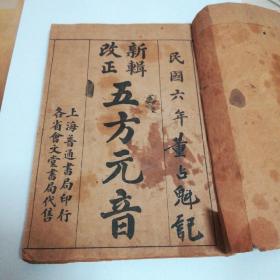 民國六年董占魁記
新輯
改正
五方元音
上海普通書局印行
各省會文堂書局代售